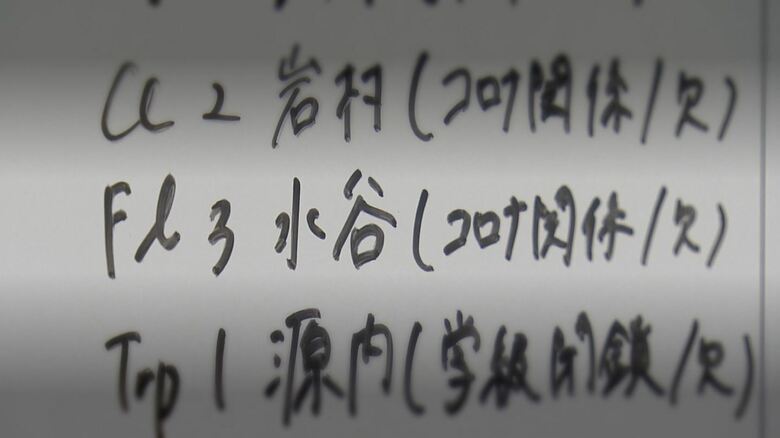 Cl 2 岩村(コロナ関休/欠)
Fl 3 水谷(コロナ関休/欠)
Trp 1 源内(学級閉鎖/欠)